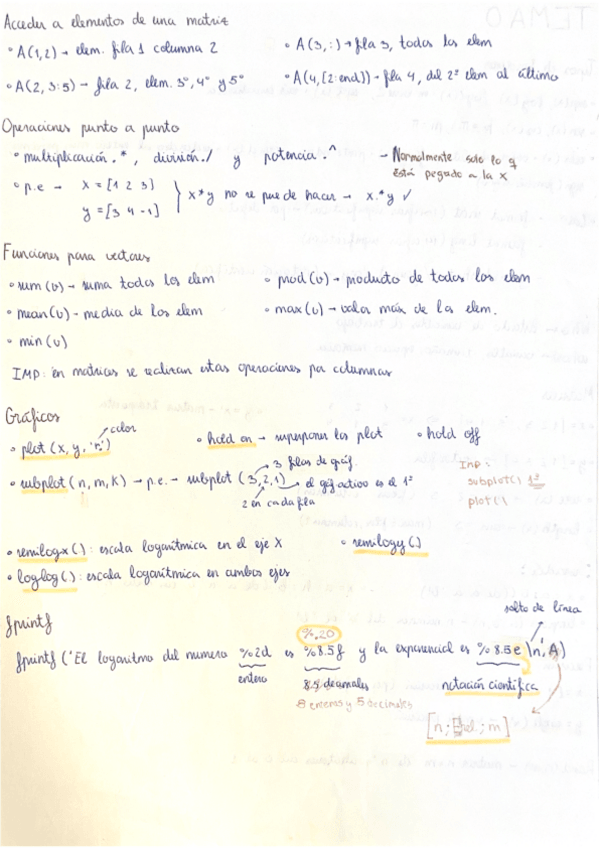 Acceder a elementos de una matriz
• A(1,2) → elem. fila 1 columna 2 • A(3,:) → fila 3, todos los elem
• A(2,3:5) → fila 2, elem. 3º, 4º y 5º • A(4,[2:end]) → fila 4, del 2º elem al último
Operaciones punto a punto
• multiplicación .* , división ./ y potencia .^ → Normalmente solo lo q
está pegado a la x
• p.e → X = [1 2 3]
y = [3 4 -1] } x*y no se puede hacer → x.*y ✓
Funciones para vectores
• sum(v) → suma todos los elem • prod(v) → producto de todos los elem
• mean(v) → media de los elem • max(v) → valor máx de los elem.
• min(v)
IMP: en matrices se realizan estas operaciones por columnas
Gráficos
color
• plot (x, y, 'r') • hold on → superponer los plot • hold off
3 filas de gráf.
• subplot (n, m, K) → p.e. → subplot (3,2,1) → el gráf activo es el 1º
2 en cada fila
IMP:
subplot() 1º
plot()
• semilogx(): escala logarítmica en el eje X • semilogy()
• loglog(): escala logarítmica en ambos ejes
fprintf
salto de línea
%.20
fprintf ('El logaritmo del numero %2d es %8.5f y la exponencial es %8.5e \n', A)
entero decimales notación científica
8 enteros y 5 decimales
[n; ; m]